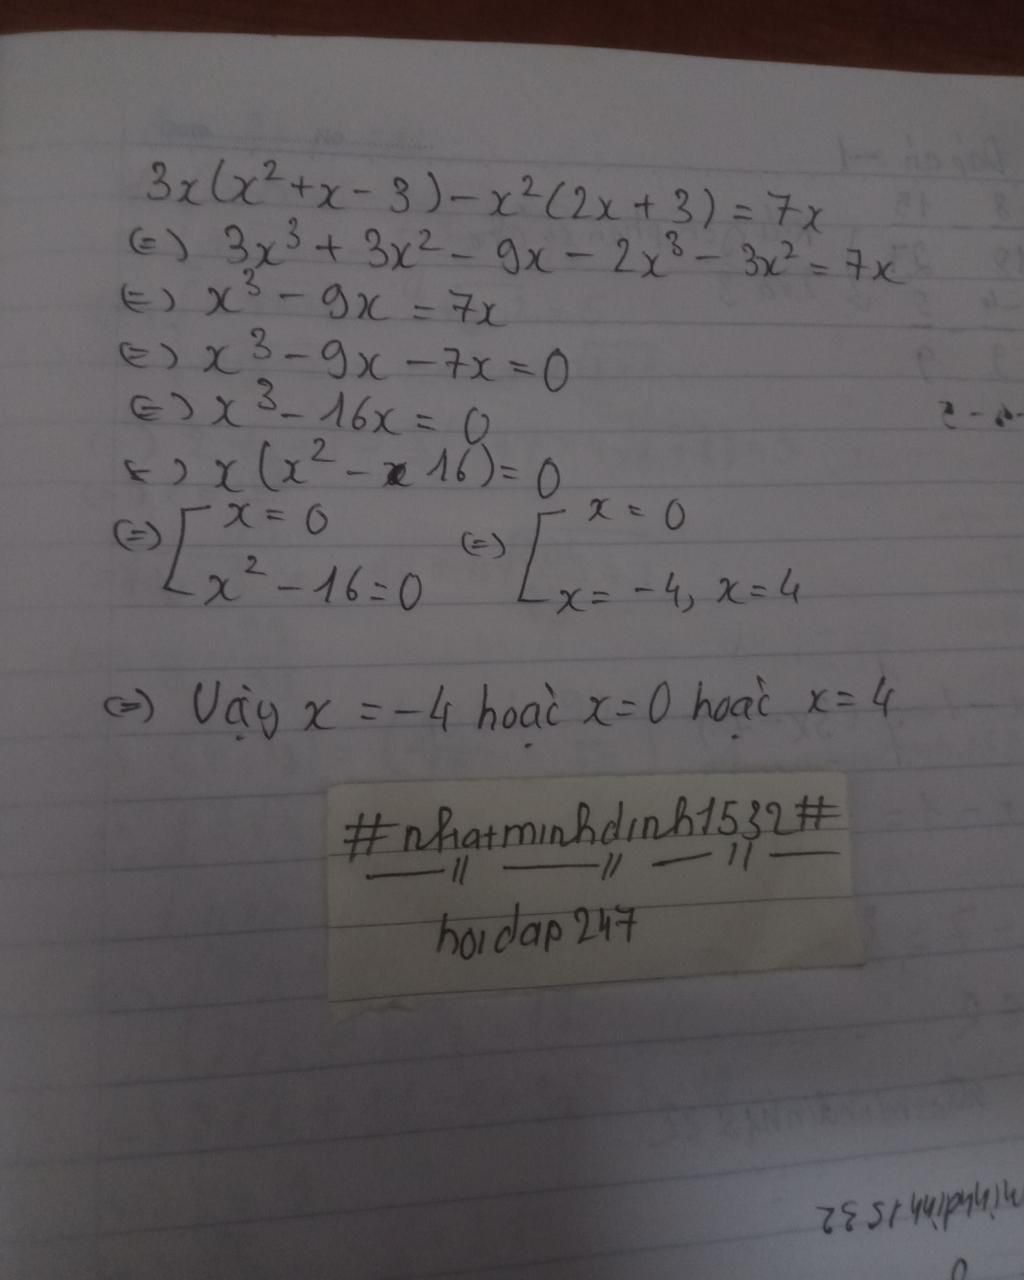 3x(x²+x-3)-x²(2x+3)=7x
(=) 3x³+3x²-9x-2x³-3x²=7x
(=) x³-9x=7x
(=) x³-9x-7x=0
(=) x³-16x=0
(=) x(x²-16)=0
(=) [ x=0 (=) [ x=0
x²-16=0 x=-4, x=4
(=) Vậy x=-4 hoặc x=0 hoặc x=4
#nhatminhdinh1532#
hoidap247
minhdinh1532